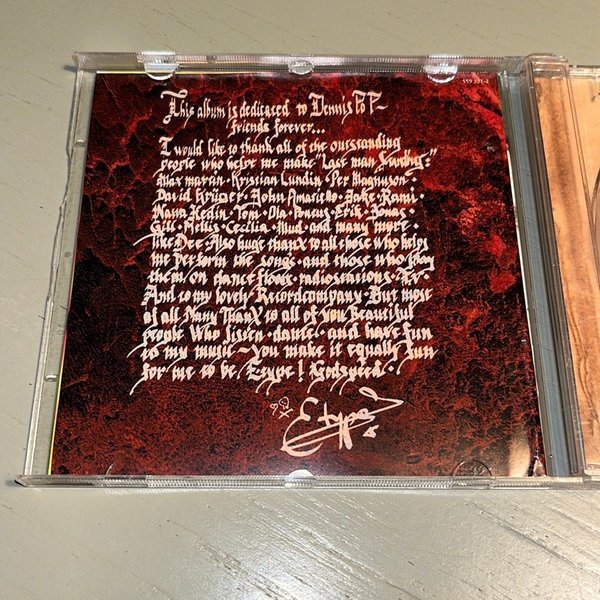 559 331-2
This album is dedicated to Dennis PoP~
friends forever...
I would like to thank all of the outstanding
people who helpt me make "Last man Standing:"
Max martin · Kristian Lundin · Per Magnuson ·
David Krüger · John Amatiello · Jake · Rami ·
Nana Hedin · Tom · Ola · Pontus · Erik · Jonas ·
Gill · Mellis · Cecilia · Mud · and many more ·
like Dee · Also huge thanX to all those who helps
me perform the songs · and those who play
them on dance floors · radiostations · Tv ·
And to my lovely Recordcompany · But most
of all Many ThanX to all of you Beautiful
people Who listen · dance · and have fun
to my music ~ you make it equally fun
for me to be E-type! Godspeed ·
E-type